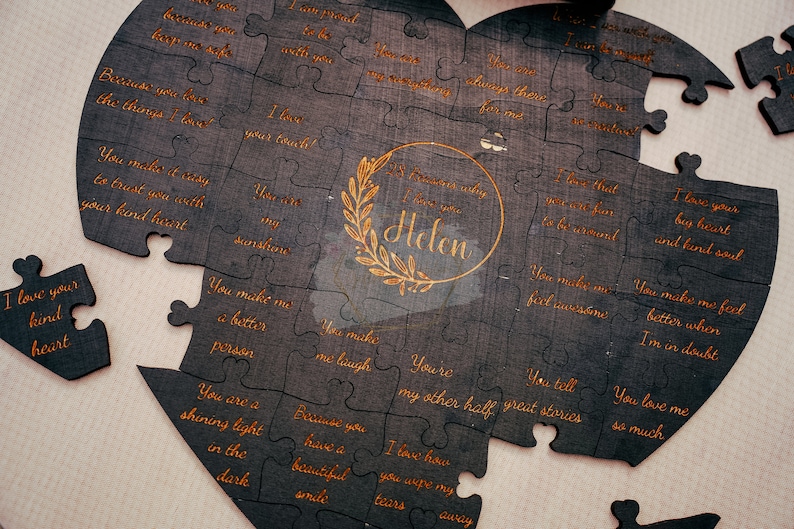 I love you
because you
keep me safe
I am proud
to be
with you
You are
my everything
You are
always there
for me
with you
I can be myself
You're
so creative!
Because you love
the things I love!
I love
your touch!
28 Reasons why
I love you
Helen
I love that
you are fun
to be around
I love your
big heart
and kind soul
You make it easy
to trust you with
your kind heart
You are
my
sunshine
You make me
feel awesome
You make me feel
better when
I'm in doubt
I love your
kind
heart
You make me
a better
person
You make
me laugh
You're
my other half
You tell
great stories
You love me
so much
You are a
shining light
in the
dark
Because you
have a
beautiful
smile
I love how
you wipe my
tears
away